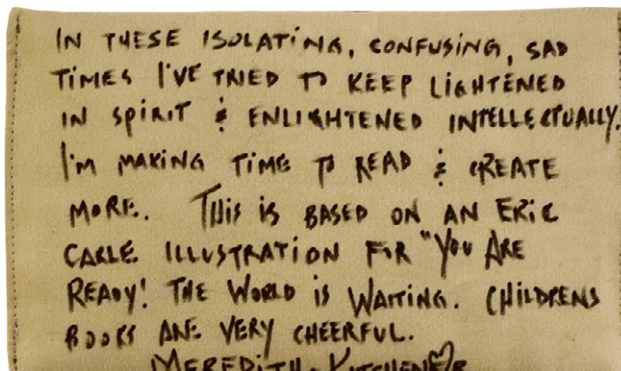 IN THESE ISOLATING, CONFUSING, SAD
TIMES I'VE TRIED TO KEEP LIGHTENED
IN SPIRIT & ENLIGHTENED INTELLECTUALLY.
I'M MAKING TIME TO READ & CREATE
MORE. THIS IS BASED ON AN ERIC
CARLE ILLUSTRATION FOR "YOU ARE
READY! THE WORLD IS WAITING. CHILDRENS
BOOKS ARE VERY CHEERFUL.
MEREDITH, KITCHENER